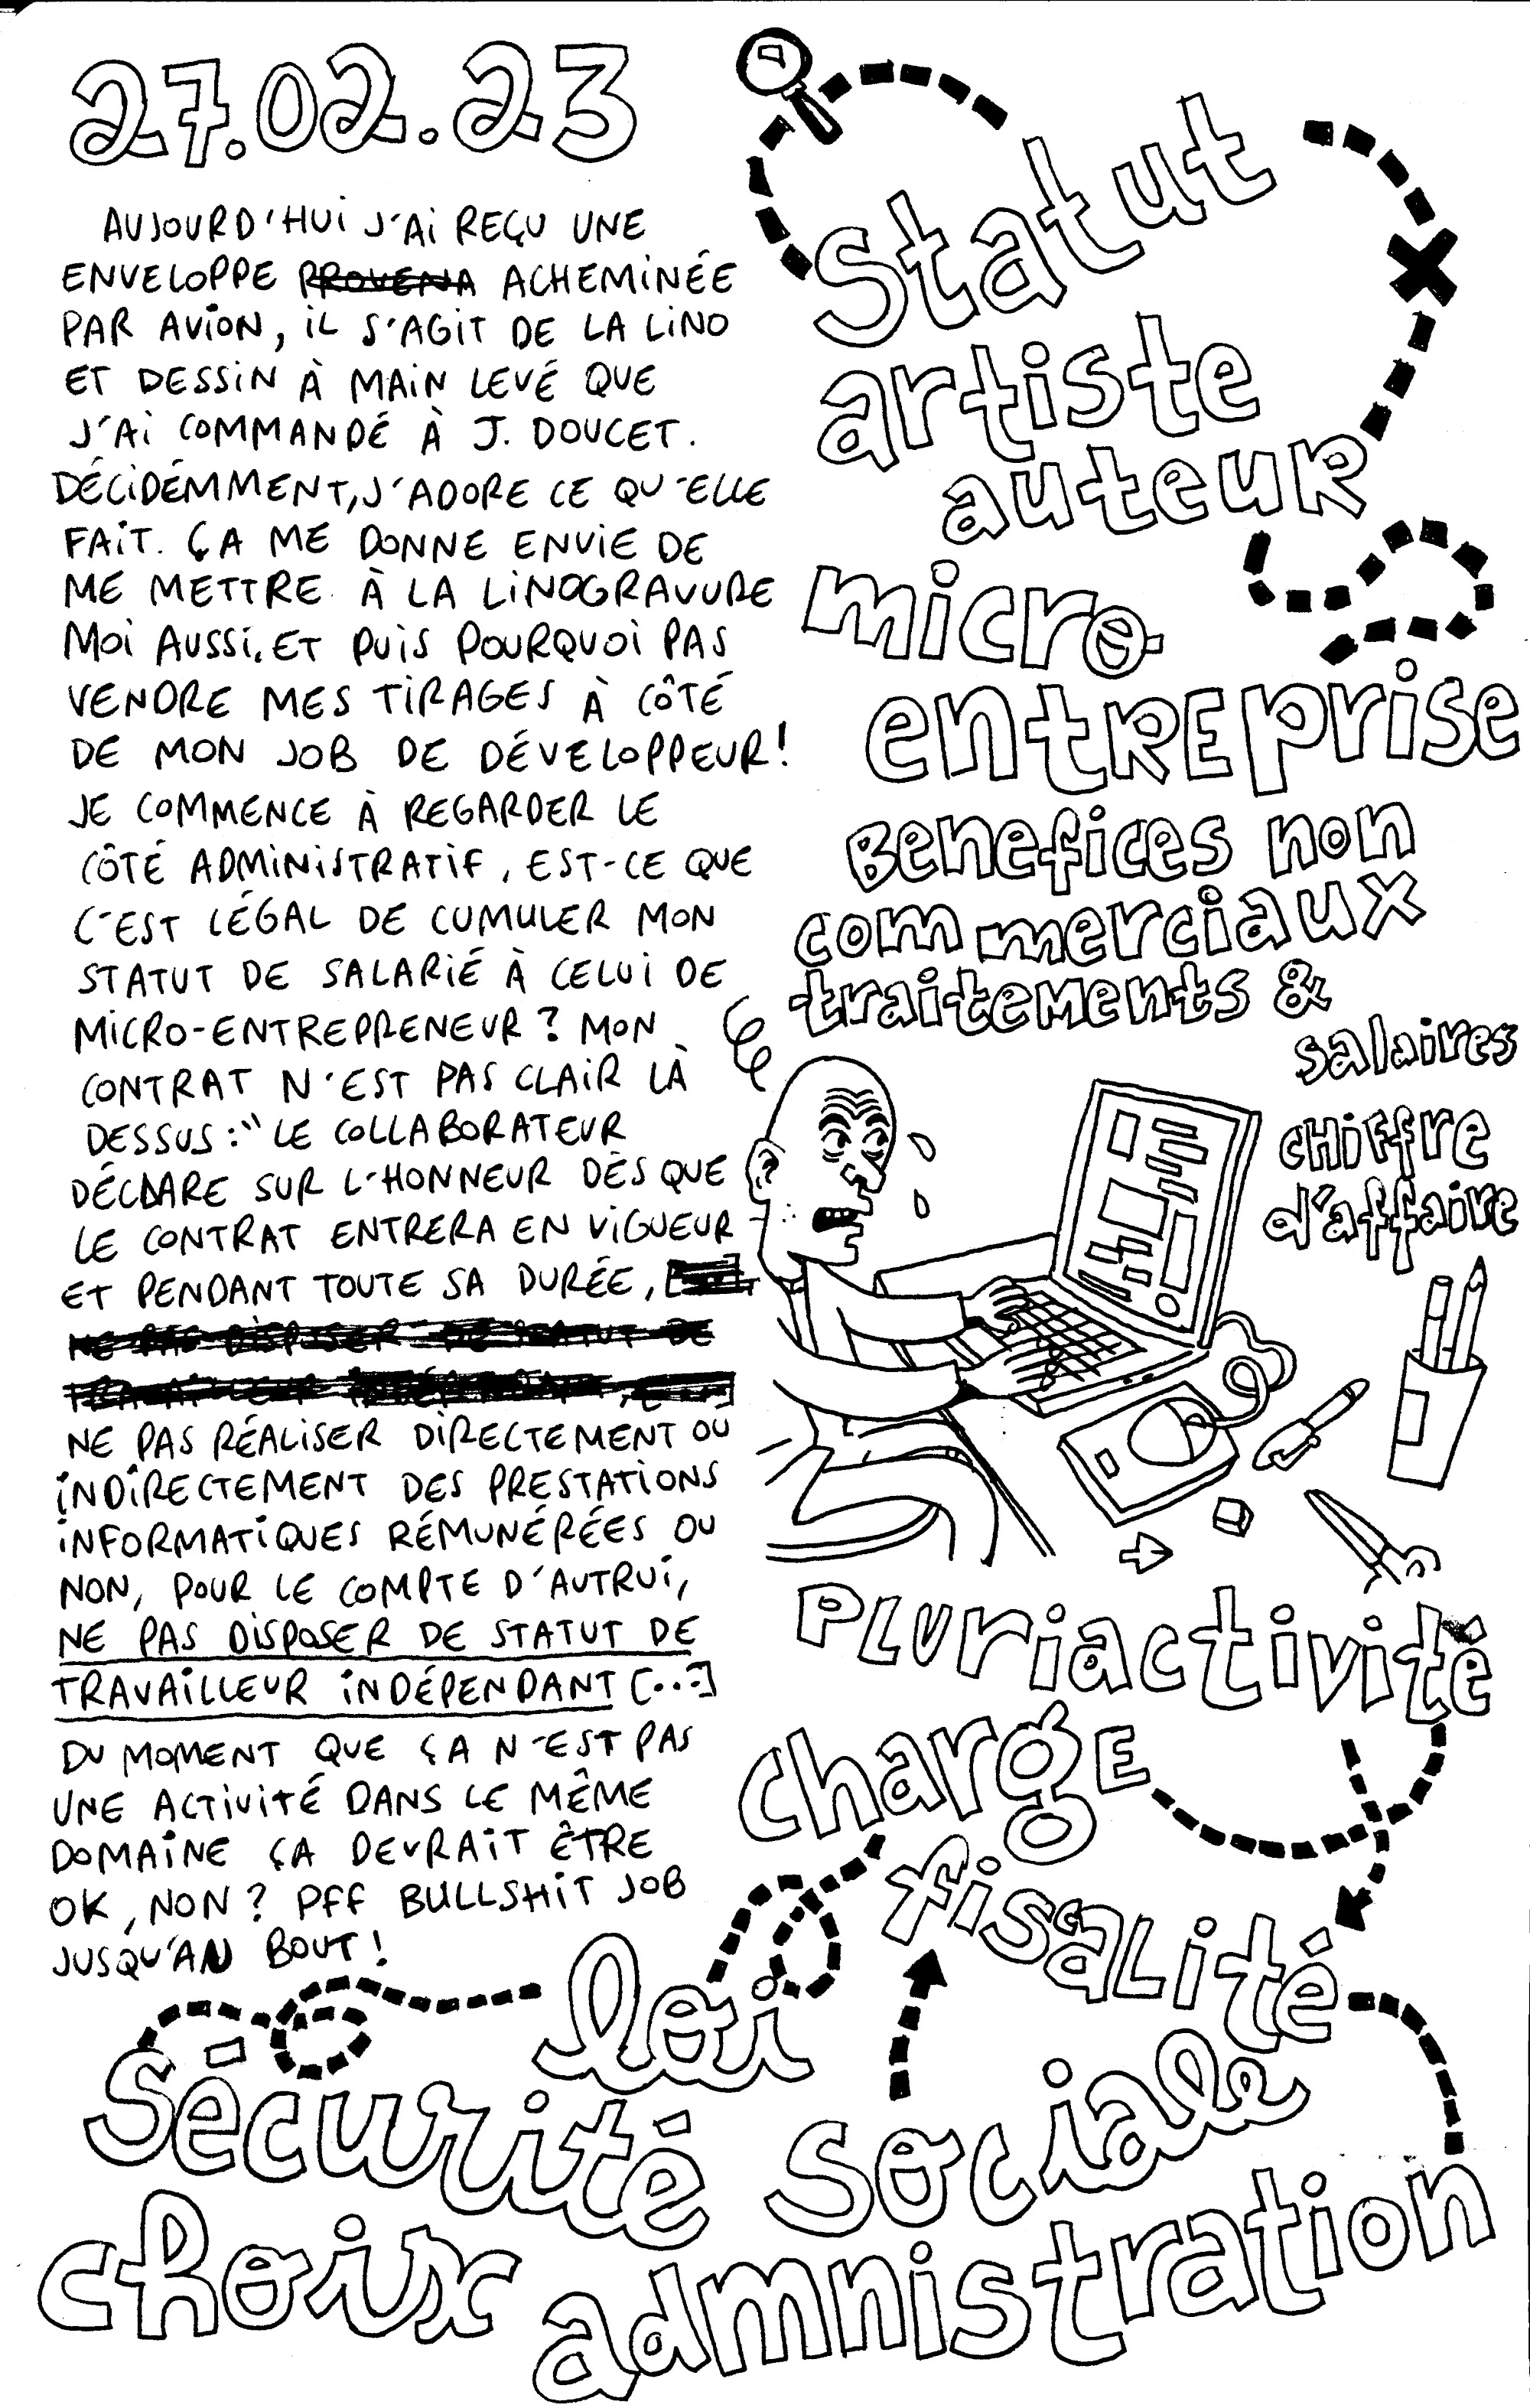 27.02.23
AUJOURD'HUI J'AI REÇU UNE
ENVELOPPE PROVENA ACHEMINÉE
PAR AVION, IL S'AGIT DE LA LINO
ET DESSIN À MAIN LEVÉ QUE
J'AI COMMANDÉ À J. DOUCET.
DÉCIDÉMMENT, J'ADORE CE QU'ELLE
FAIT. ÇA ME DONNE ENVIE DE
ME METTRE À LA LINOGRAVURE
MOI AUSSI, ET PUIS POURQUOI PAS
VENDRE MES TIRAGES À CÔTÉ
DE MON JOB DE DÉVELOPPEUR!
JE COMMENCE À REGARDER LE
CÔTÉ ADMINISTRATIF, EST-CE QUE
C'EST LÉGAL DE CUMULER MON
STATUT DE SALARIÉ À CELUI DE
MICRO-ENTREPRENEUR? MON
CONTRAT N'EST PAS CLAIR LÀ
DESSUS: "LE COLLABORATEUR
DÉCLARE SUR L'HONNEUR DÈS QUE
LE CONTRAT ENTRERA EN VIGUEUR
ET PENDANT TOUTE SA DURÉE,
NE PAS DISPOSER DE STATUT DE
TRAVAILLEUR INDÉPENDANT, [...]
NE PAS RÉALISER DIRECTEMENT OU
INDIRECTEMENT DES PRESTATIONS
INFORMATIQUES RÉMUNÉRÉES OU
NON, POUR LE COMPTE D'AUTRUI,
NE PAS DISPOSER DE STATUT DE
TRAVAILLEUR INDÉPENDANT [...]
DU MOMENT QUE ÇA N'EST PAS
UNE ACTIVITÉ DANS LE MÊME
DOMAINE ÇA DEVRAIT ÊTRE
OK, NON? PFF BULLSHIT JOB
JUSQU'AN BOUT!
Statut
artiste
auteuR
micro-
entREprise
Benefices non
commerciaux
traitements &
salaires
CHiFfre
d'affaire
PLUriactivité
chargE
fiscaLité
loi
sécurité sociale
choix admnistration